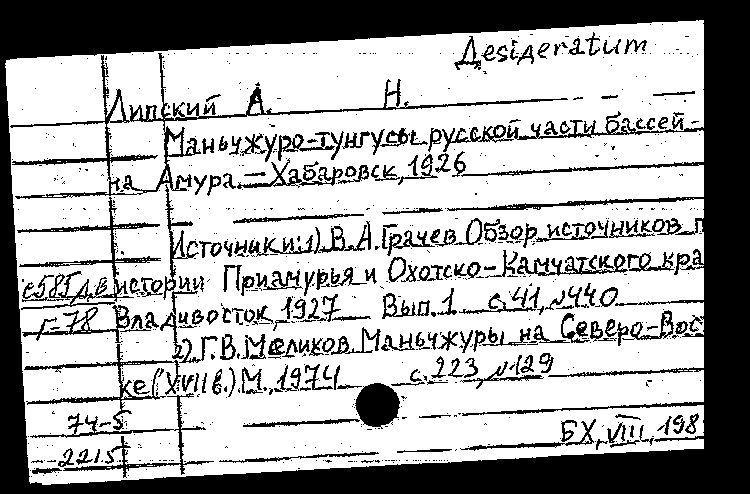 Desideratum
Липский А. Н.
Маньчжуро-тунгусы русской части бассей-
на Амура.—Хабаровск, 1926
Источники: 1) В.А.Грачев Обзор источников п
истории Приамурья и Охотско-Камчатского кра
Г-78 Владивосток, 1927 Вып.1 с.41, №440
2) Г.В.Мелихов Маньчжуры на Северо-Вос
ке (XVII в.) М., 1974 с.223, №129
74-5
2215
БХ, VIII, 198